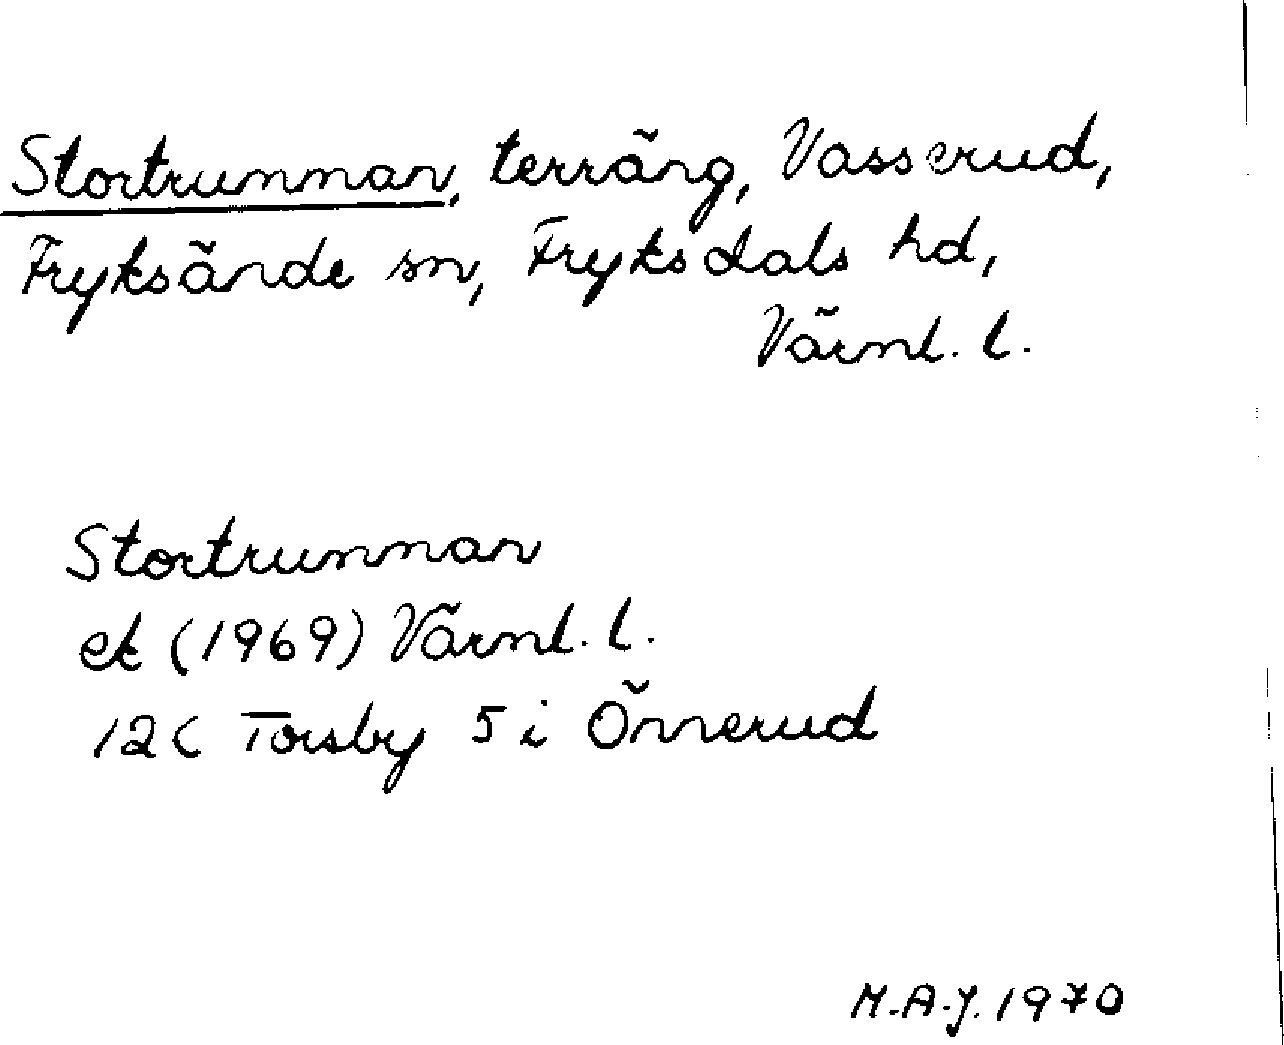 Stortrumman, terräng, Vasserud,
Fryksände sn, Fryksdals hd,
Värml. l.
Stortrumman
ek (1969) Värml. l.
12C Torsby 5 i Önnerud
M.A.J. 1970